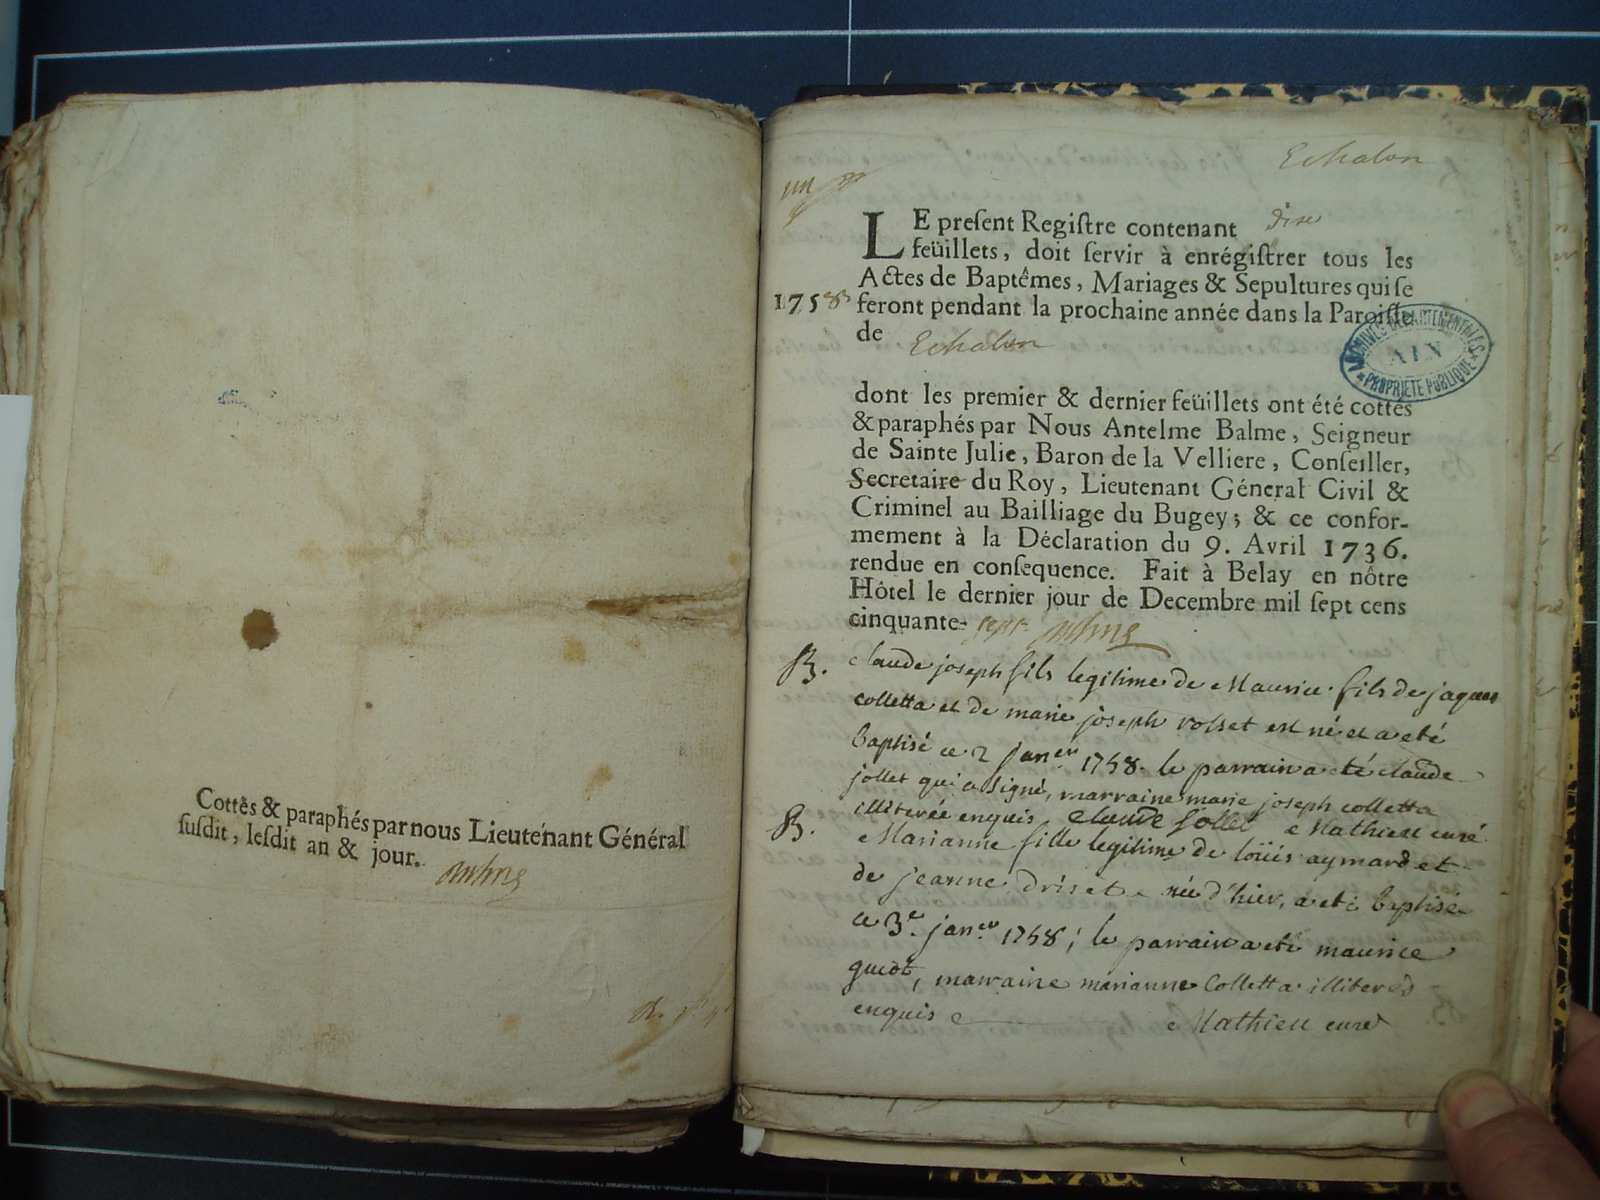 Cottés & paraphés par nous Lieutenant Général
susdit, lesdit an & jour.
Echalon
un
LE present Registre contenant dix
feüillets, doit servir à enrégistrer tous les
Actes de Baptêmes, Mariages & Sepultures qui se
1758 feront pendant la prochaine année dans la Paroisse
de Echalon
ARCHIVES DÉPARTEMENTALES
AIN
PROPRIÉTÉ PUBLIQUE
dont les premier & dernier feüillets ont été cottés
& paraphés par Nous Antelme Balme, Seigneur
de Sainte Julie, Baron de la Velliere, Conseiller,
Secretaire du Roy, Lieutenant Géneral Civil &
Criminel au Bailliage du Bugey; & ce confor-
mement à la Déclaration du 9. Avril 1736.
rendue en consequence. Fait à Belay en nôtre
Hôtel le dernier jour de Decembre mil sept cens
cinquante-sept
B. claude joseph fils legitime de Maurice fils de jaques
colletta et de marie joseph rosset est né et a eté
baptisé ce 2 janer 1758. le parrain a eté claude
jollet qui a signé, marraine marie joseph colletta
illiterée enquis claude jollet Mathieu curé
B. Marianne fille legitime de loüis aymard et
de jeanne driset née d'hier, a eté baptisée
ce 3e janer 1758; le parrain a eté maurice
guidt, marraine marianne Colletta illiterés
enquis Mathieu curé